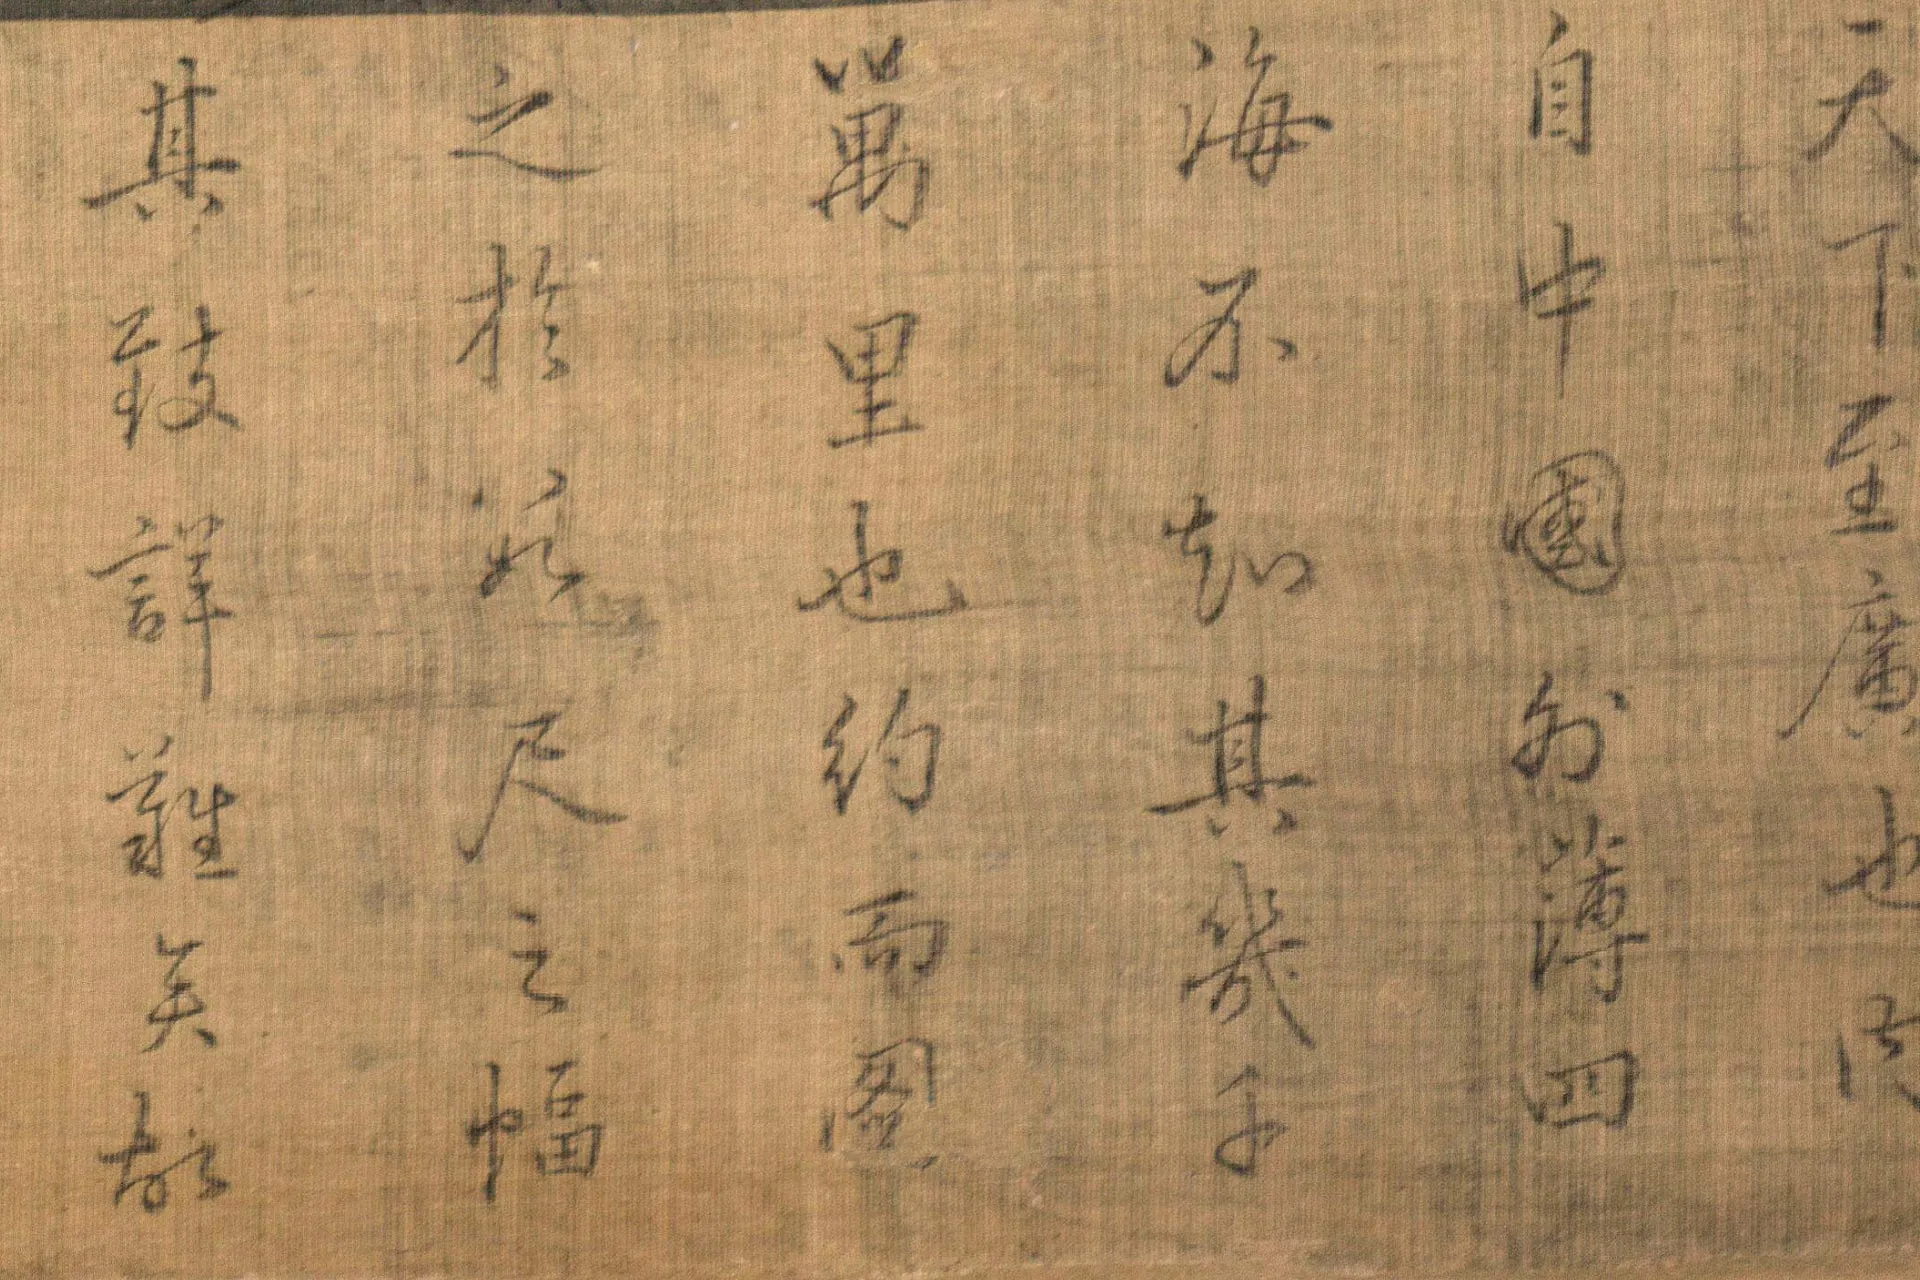 天下至廣也内
自中國外薄四
海不知其幾千
萬里也約而圖
之於數尺之幅
其致詳難矣故